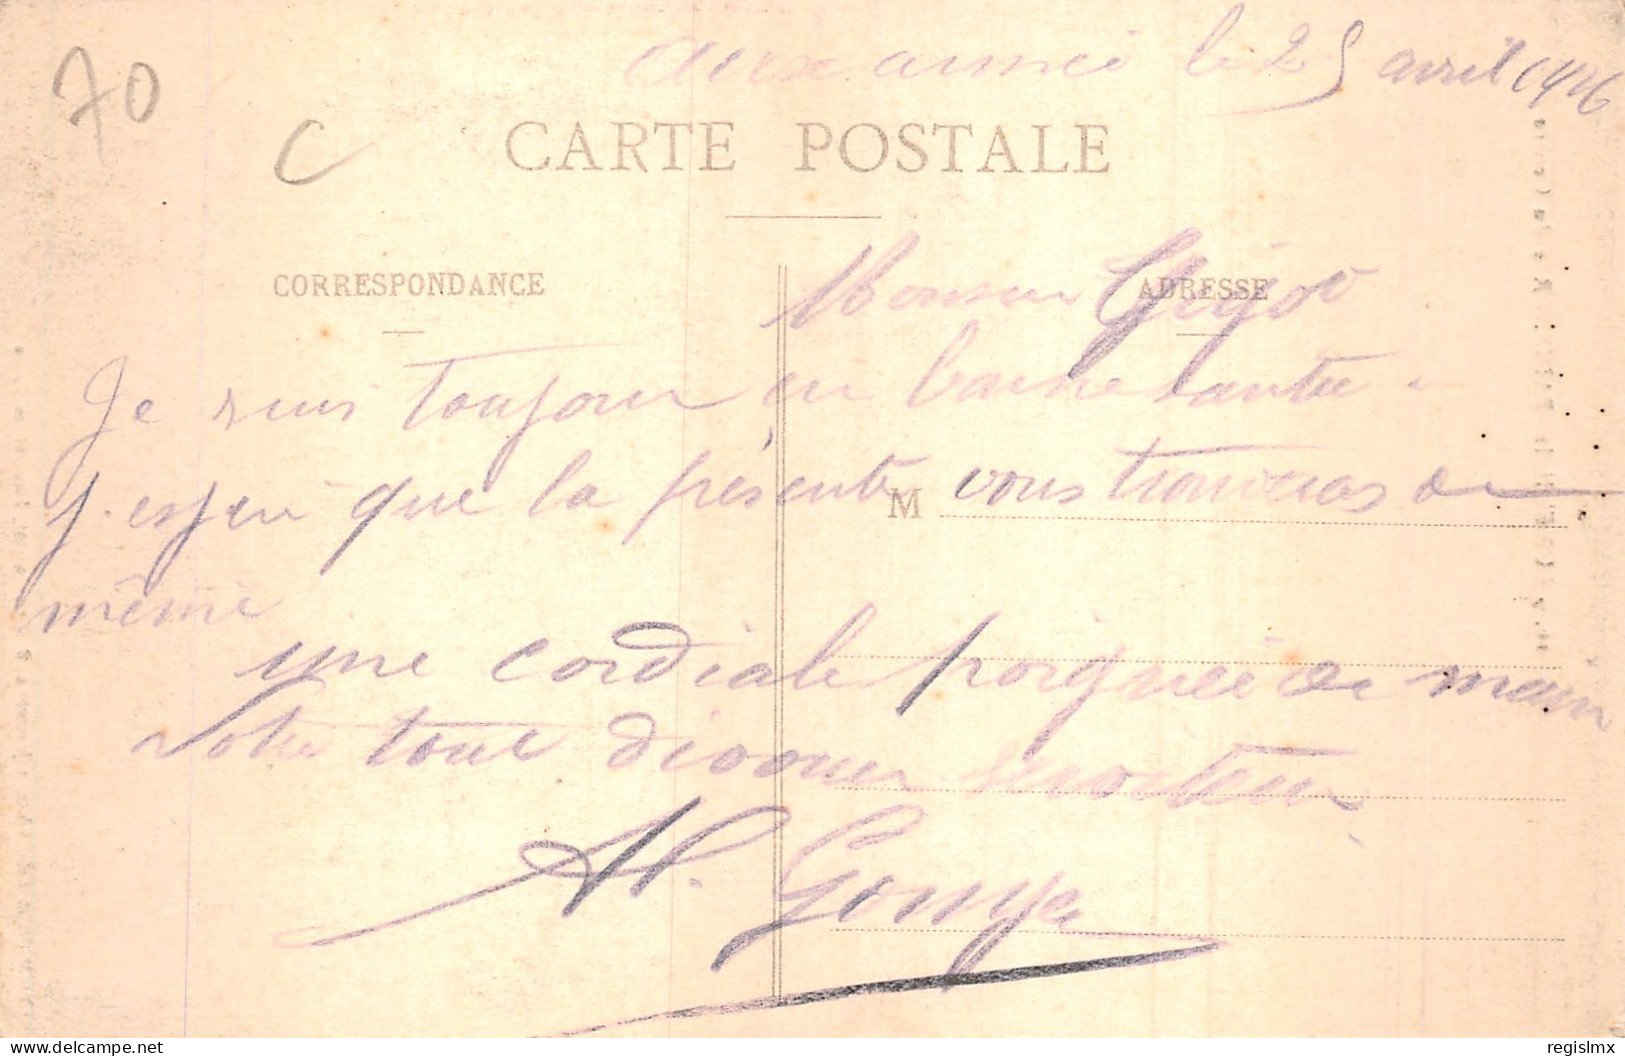 70
C
aux armée le 25 avril 1916
CARTE POSTALE
CORRESPONDANCE
ADRESSE
Monsieur Gigot
Je suis toujour en bonne santée
J'espere que la présente vous trouveras de
M
même
une cordiale poignée de main
Votre tout
H. Gouye
www.delcampe.net
regislmx